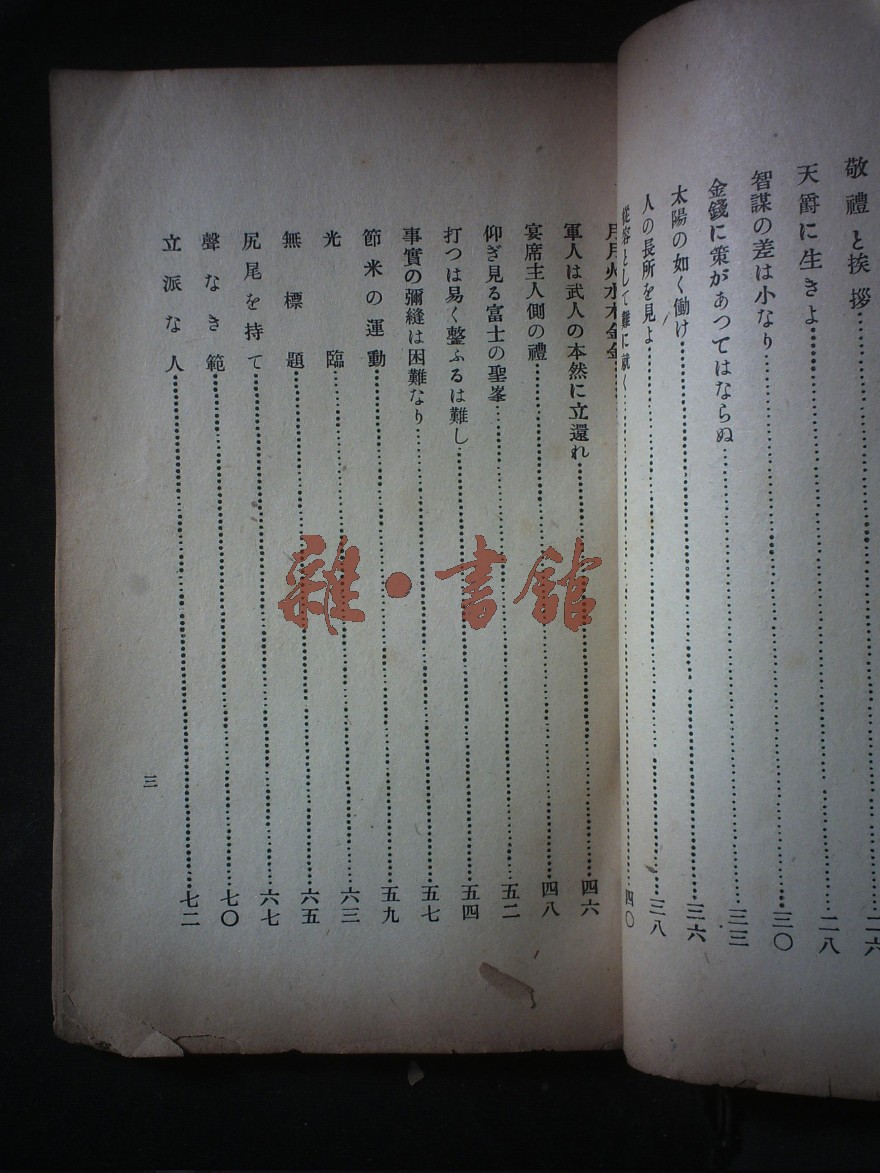 敬禮と挨拶……二六
天爵に生きよ……二八
智謀の差は小なり……三〇
金錢に策があつてはならぬ……三三
太陽の如く働け……三六
人の長所を見よ……三八
從容として難に就く……四〇
月月火水木金金
軍人は武人の本然に立還れ……四六
宴席主人側の禮……四八
仰ぎ見る富士の聖峯……五二
打つは易く整ふるは難し……五四
事實の彌縫は困難なり……五七
節米の運動……五九
光臨……六三
無標題……六五
尻尾を持て……六七
聲なき範……七〇
立派な人……七二
三
雜·書館